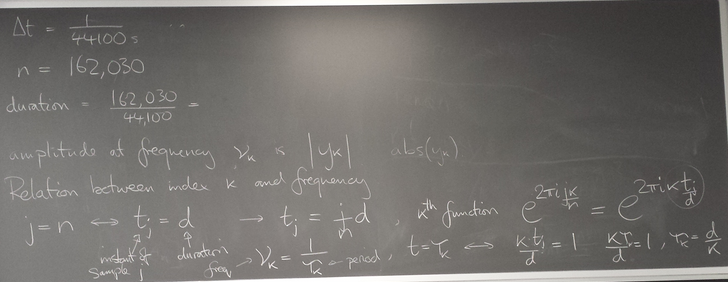 Δt = 1/44100 s
n = 162,030
duration = 162,030/44,100 =
amplitude at frequency ν_k is |y_k| abs(y_k)
Relation between index k and frequency
j = n ⟺ t_j = d → t_j = j/n d, kth function e^(2πi jk/n) = e^(2πi k t_j/d)
instant of sample j duration freq → ν_k = 1/τ_k ← period, t = τ_k ⟺ k·t_j/d = 1 kτ_k/d = 1, τ_k = d/k